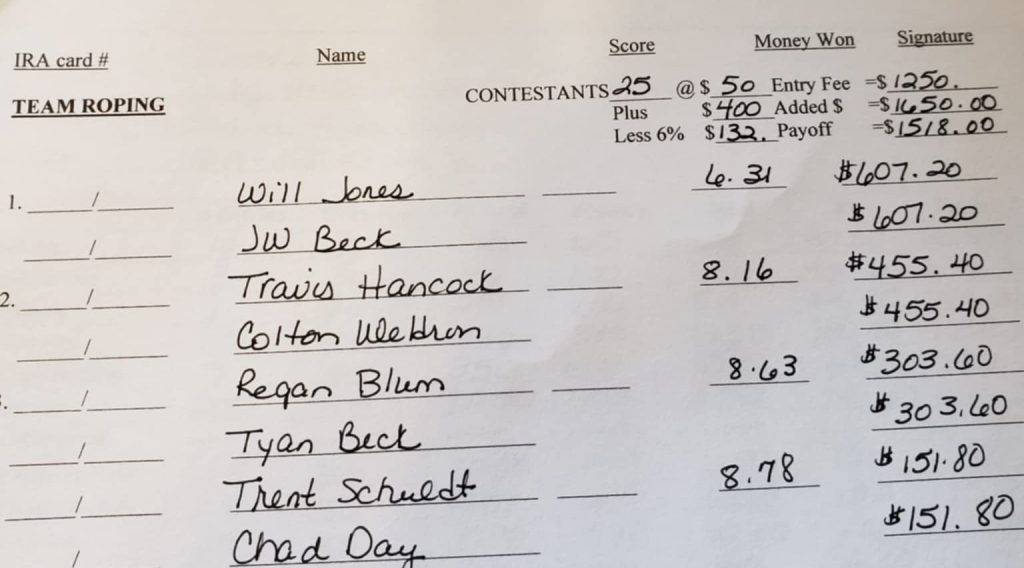 IRA card # Name Score Money Won Signature
TEAM ROPING CONTESTANTS 25 @ $ 50 Entry Fee =$ 1250.
Plus $ 400 Added $ =$ 1650.00
Less 6% $ 132. Payoff =$ 1518.00
1. / Will Jones 6.31 $607.20
/ JW Beck $607.20
2. / Travis Hancock 8.16 $455.40
/ Colton $455.40
/ Regan Blum 8.63 $303.60
/ Tyan Beck $303.60
/ Trent Schueldt 8.78 $151.80
/ Chad Day $151.80